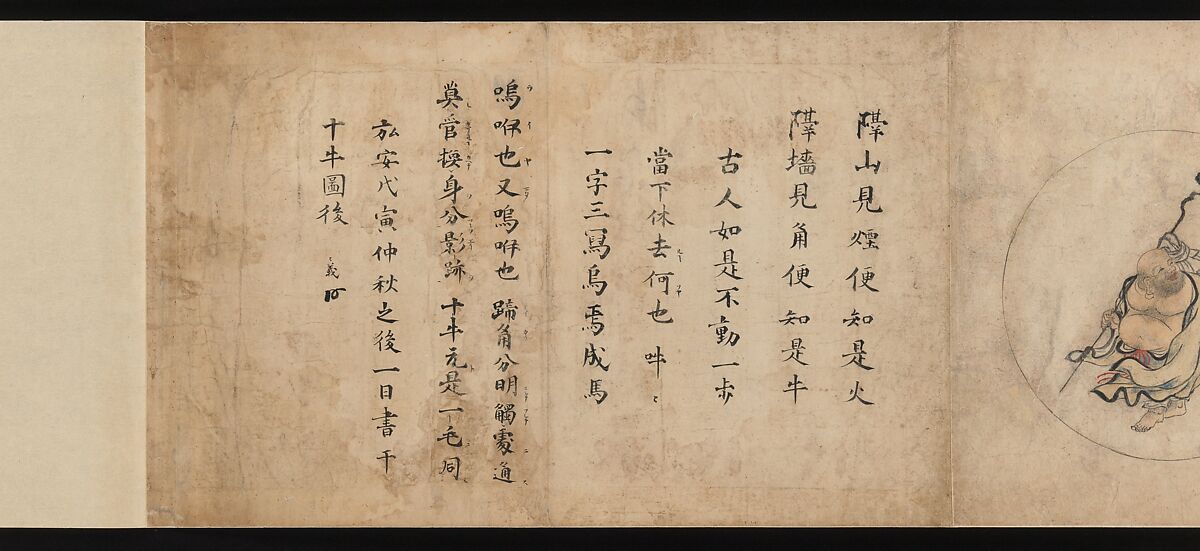 隔山見煙便知是火
隔墻見角便知是牛
古人如是不動一歩
當下休去何也咄〻
一字三冩烏焉成馬
嗚咿也又嗚咿也蹄角分明觸處通
莫管換身分影跡十牛元是一毛同
弘安戊寅仲秋之後一日書于
十牛圖後